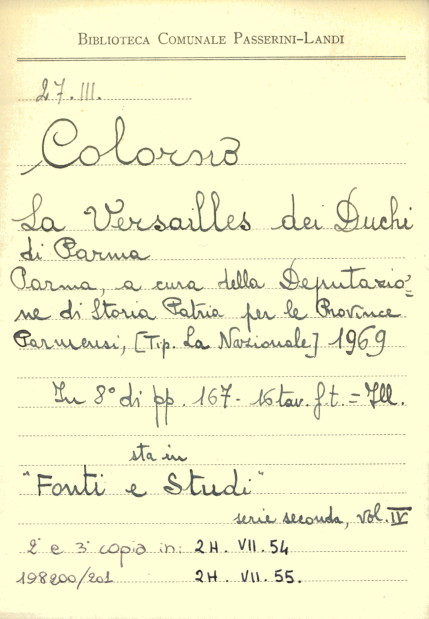 BIBLIOTECA COMUNALE PASSERINI-LANDI
27. III.
Colorno
La Versailles dei Duchi
di Parma
Parma, a cura della Deputazio=
ne di Storia Patria per le Province
Parmensi, [Tip. La Nazionale] 1969
In 8° di pp. 167 - 16 tav. f.t. = Ill.
sta in
"Fonti e Studi"
serie seconda, vol. IV
2ª e 3ª copia in: 2H. VII. 54
198200/201 2H. VII. 55.